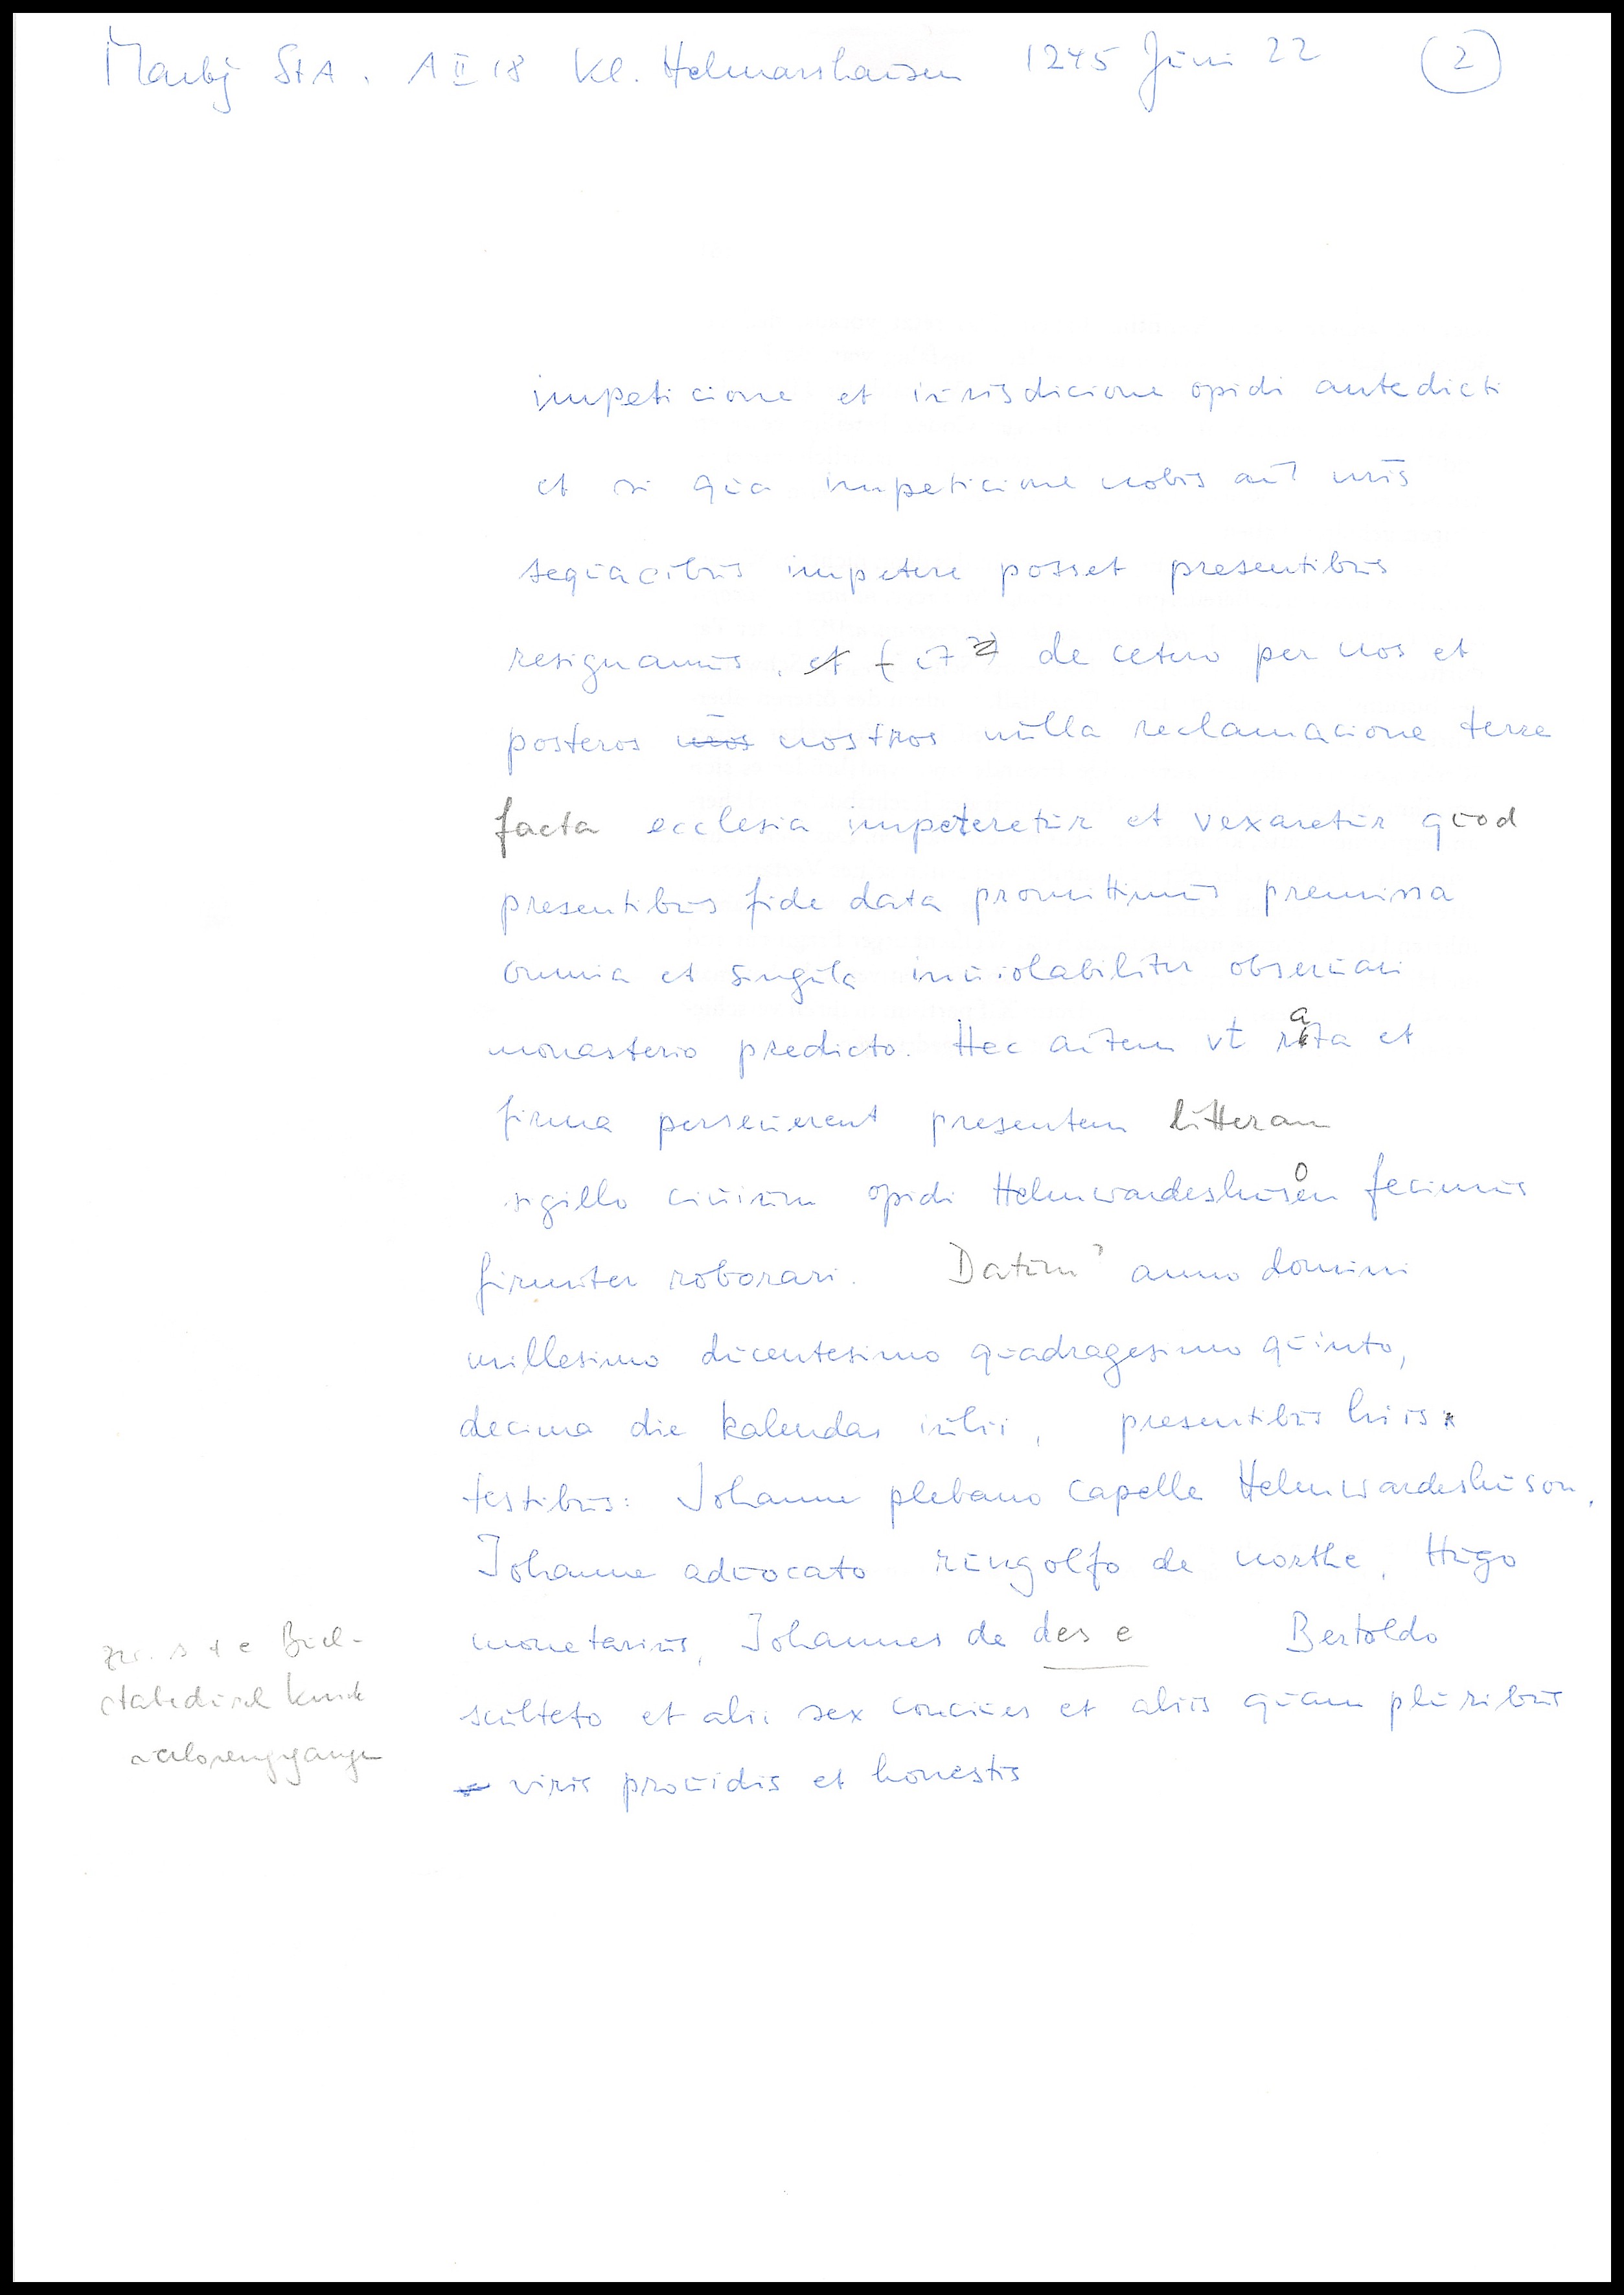 Marbg StA. 1 II 18 Kl. Helmarshausen 1245 Juni 22 (2)
impeticione et iurisdicione opidi antedicti
et si qua impeticione nobis aut nr̄is
sequacibus impetere posset presentibus
resignamus, et ut de cetero per nos et
posteros nr̄os nostros nulla reclamacione terre
facta ecclesia impeteretur et vexaretur quod
presentibus fide data promittimus premissa
omnia et singula inuiolabiliter obseruari
monasterio predicto. Hec autem vt rata et
firma perseuerent presentem litteram
sigillo ciuium opidi Helmwardeshuson fecimus
firmiter roborari. Datum anno domini
millesimo ducentesimo quadragesimo quinto,
decima die kalendas iulii, presentibus hiis
testibus: Johanne plebano capelle Helmwardeshuson,
Johanne aduocato rungolfo de northe, Hugo
monetarius, Johannes de des e Bertoldo
sculteto et alii sex conciues et aliis quam pluribus
viris prouidis et honestis
zw. s + e Buch-
stabe durch Knick
verlorengegangen